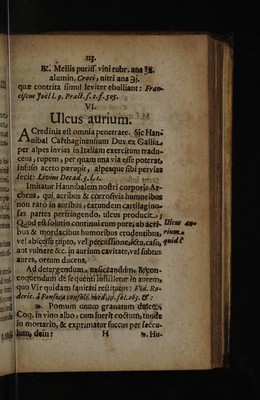 113.
℞. Mellis puriss. vini rubr. ana ℥ß.
alumin. Croci, nitri ana ʒj.
quæ contrita simul leviter ebulliant: Fran-
ciscus Joël l. 9. Pract. s. 2. f. 505.
VI.
Ulcus aurium.
ACredinis est omnia penetrare. Sic Han-
nibal Carthaginensium Dux ex Gallia
per alpes invias in Italiam exercitum tradu-
cens, rupem, per quam una via esse poterat,
infuso aceto pærupit, alpesque sibi pervias
fecit: Livius Decad. 3. l. 1.
Imitatur Hannibalem nostri corporis Ar-
cheus, qui acribus & corrosivis humoribus
non raro in auribus, earumdem cartilagino-
sas partes perfringendo, ulcus producit.
Quod est solutio continui cum pure; ab acri-
bus & mordacibus humoribus erodentibus,
vel abscessu rupto, vel percussione, icto, casu,
aut vulnere &c. in aurium cavitate, vel subtus
aures, ortum ducens.
Ulcus au-
rium
quid?
Ad detergendum, exsiccandum, & con-
coquendum si sequenti instilletur in aurem,
quo Vir quidam sanitati restitum: Vid. Ro-
deric. à Fonseca
℞. Pomum unum granatum dulce,
Coq. in vino albo; cum fuerit coctum, tunde
in mortario, & exprimatur succus per saccu-
lum, dein:
H
℞. Hu-